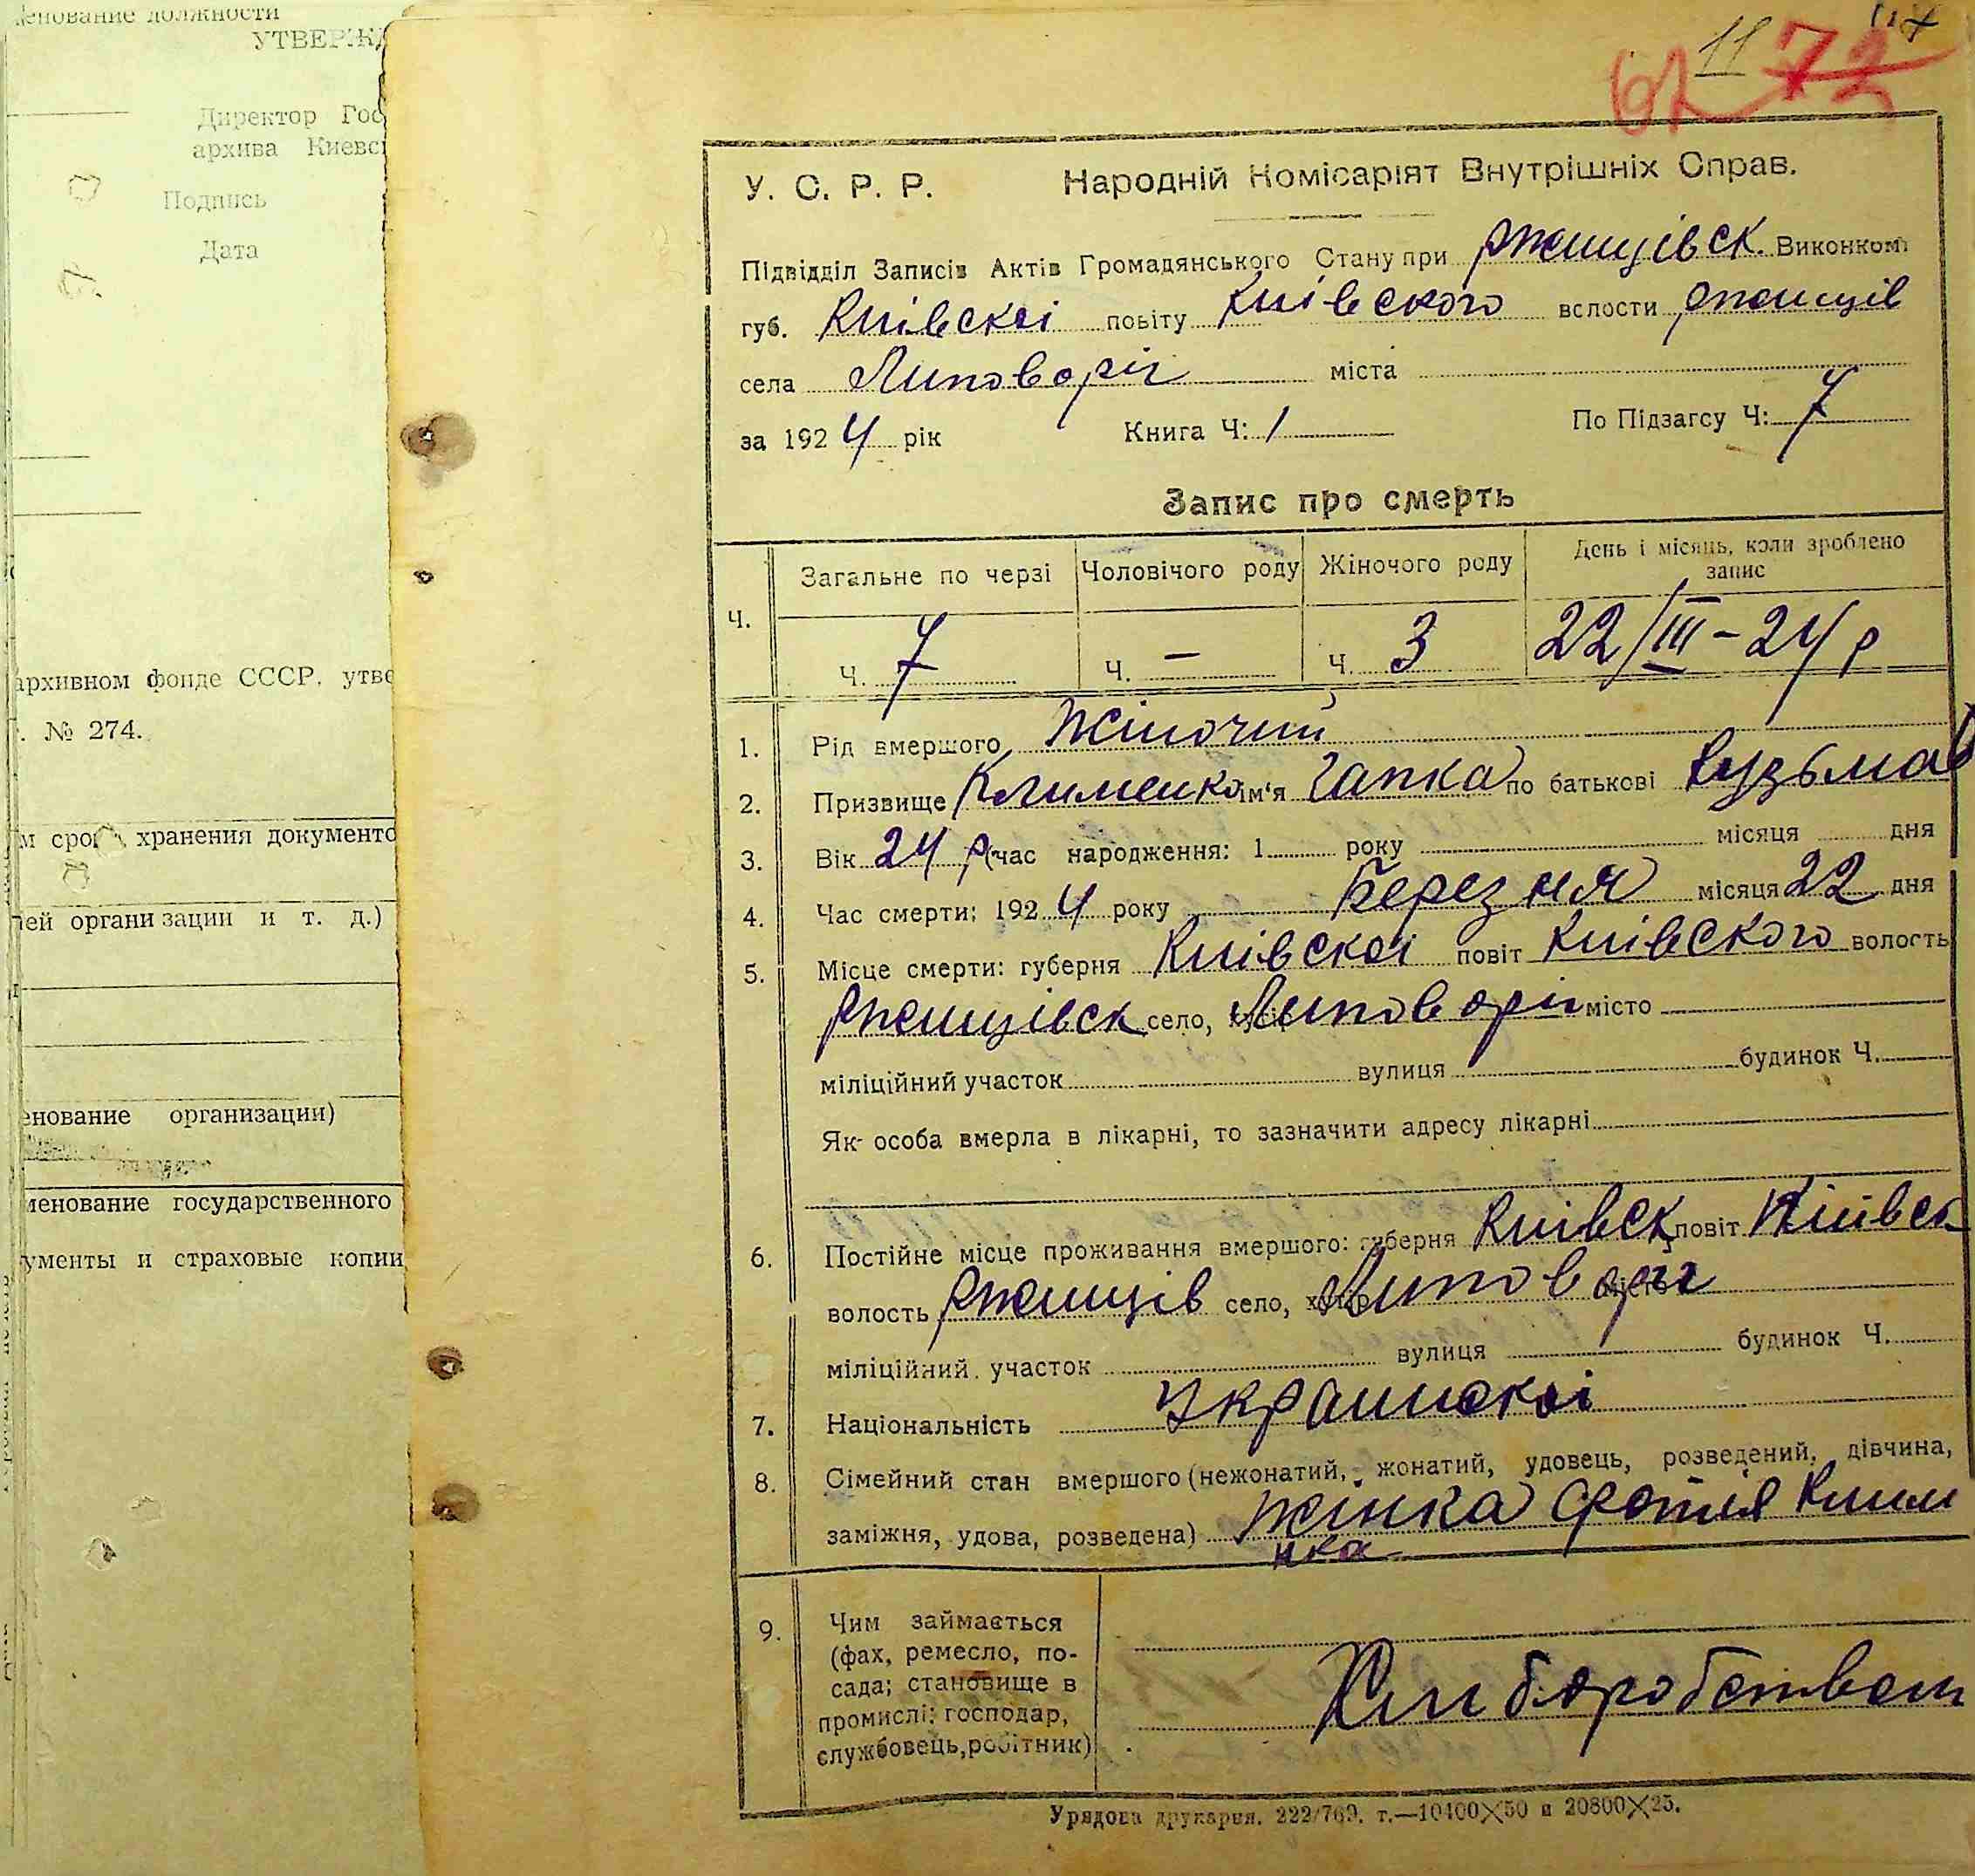 менование должности
УТВЕРЖД
Директор Гос
архива Киевс
Подпись
Дата
архивном фонде СССР, утве
. № 274.
м срок хранения документо
лей органи зации и т. д.)
енование организации)
менование государственного
ументы и страховые копии
11
62 73
У. С. Р. Р. Народній Комісаріят Внутрішніх Справ.
Підвідділ Записів Актів Громадянського Стану при Ржищівск. Виконком
губ. Київскоі повіту Київского волости Ржищів
села Липоворіг міста
за 1924 рік Книга Ч: 1 По Підзагсу Ч: 7
Запис про смерть
Ч. Загальне по черзі Чоловічого роду Жіночого роду День і місяць, коли зроблено запис
Ч. 7 Ч. — Ч. 3 22/III-24 р
1. Рід вмершого Жіночий
2. Призвище Клименко ім'я Гапка по батькові Кузьмов
3. Вік 24 р (час народження: 1 року місяця дня
4. Час смерти: 1924 року Березня місяця 22 дня
5. Місце смерти: губерня Київскоі повіт Київского волость
Ржищівск село, Липоворіг місто
міліційний участок вулиця будинок Ч.
Як особа вмерла в лікарні, то зазначити адресу лікарні
6. Постійне місце проживання вмершого: губерня Київск повіт Київск
волость Ржищів село, хутір Липоворіг
міліційний участок вулиця будинок Ч.
7. Національність Украинскоі
8. Сімейний стан вмершого (нежонатий, жонатий, удовець, розведений, дівчина,
заміжня, удова, розведена) Жінка Фотія Клим
нка
9. Чим займається
(фах, ремесло, по-
сада; становище в
промислі: господар,
службовець, робітник)
Хліборобством
Урядова друкарня. 222/769. т.—10400×50 и 20800×25.